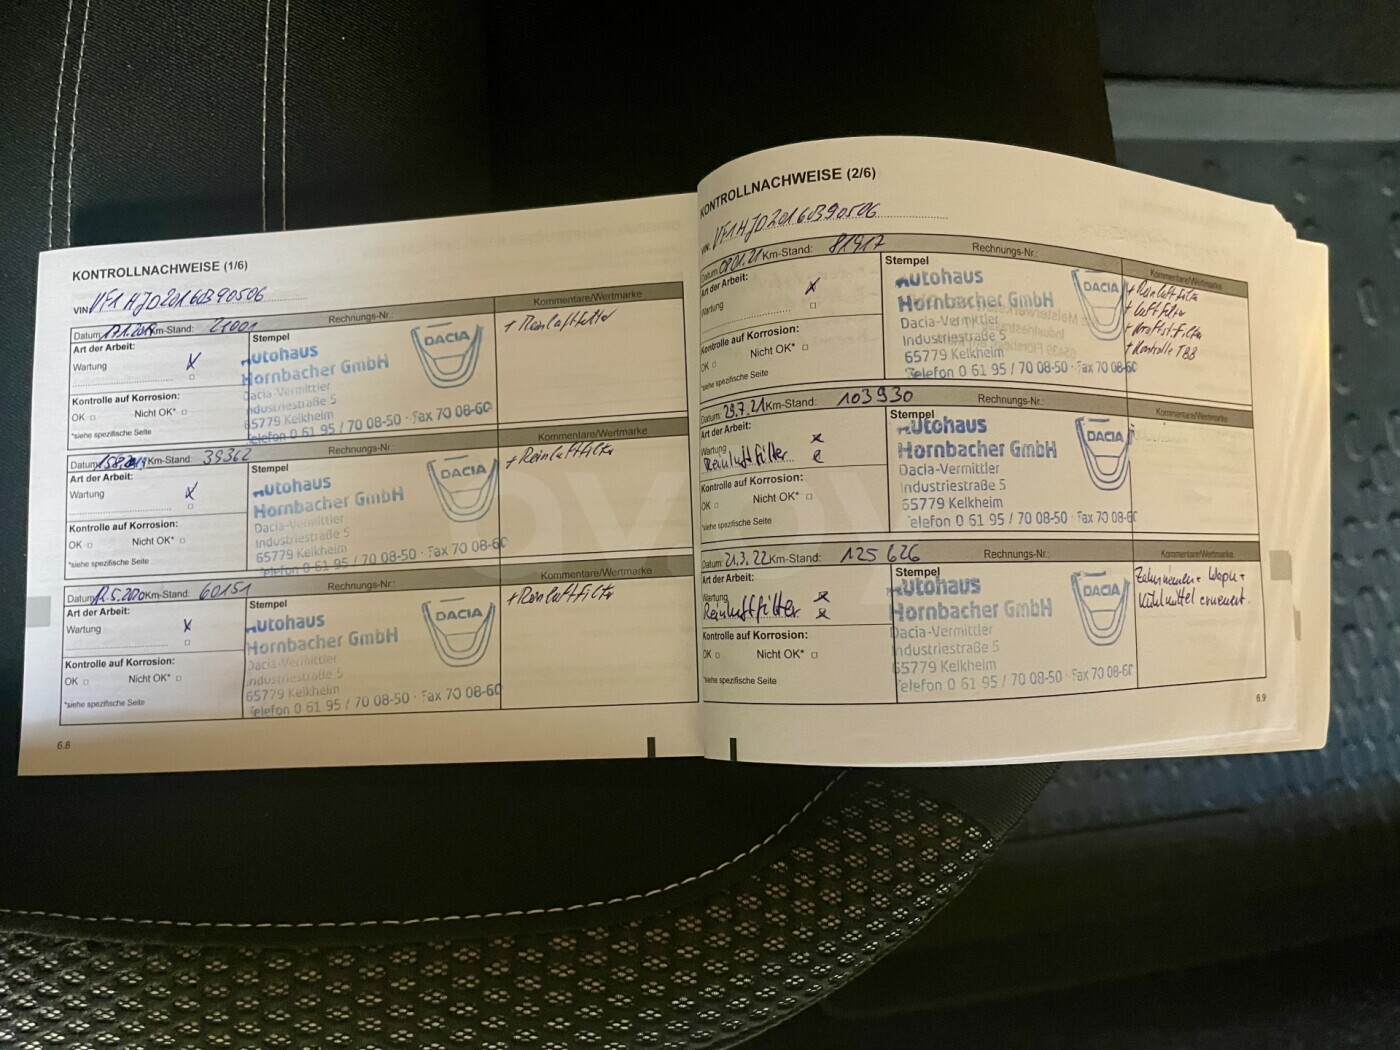 KONTROLLNACHWEISE (1/6)
VIN VF1HJD20160390506
Datum: 17.1.2019 Km-Stand: 21001 Rechnungs-Nr.: Kommentare/Wertmarke
Art der Arbeit: Stempel + Reinluftfilter
Wartung X Autohaus DACIA
Hornbacher GmbH
Dacia-Vermittler
Kontrolle auf Korrosion: Industriestraße 5
OK Nicht OK* 65779 Kelkheim
*siehe spezifische Seite Telefon 0 61 95 / 70 08-50 · Fax 70 08-60
Datum: 15.8.2019 Km-Stand: 39362 Rechnungs-Nr.: Kommentare/Wertmarke
Art der Arbeit: Stempel + Reinluftfilter
Wartung X Autohaus DACIA
Hornbacher GmbH
Dacia-Vermittler
Kontrolle auf Korrosion: Industriestraße 5
OK Nicht OK* 65779 Kelkheim
*siehe spezifische Seite Telefon 0 61 95 / 70 08-50 · Fax 70 08-60
Datum: 12.5.2020 Km-Stand: 60151 Rechnungs-Nr.: Kommentare/Wertmarke
Art der Arbeit: Stempel + Reinluftfilter
Wartung X Autohaus DACIA
Hornbacher GmbH
Dacia-Vermittler
Kontrolle auf Korrosion: Industriestraße 5
OK Nicht OK* 65779 Kelkheim
*siehe spezifische Seite Telefon 0 61 95 / 70 08-50 · Fax 70 08-60
6.8
KONTROLLNACHWEISE (2/6)
VIN: VF1HJD20160390506
Datum: 01.21 Km-Stand: 81917 Rechnungs-Nr.: Kommentare/Wertmarke
Art der Arbeit: Stempel + Reinluftfilter
Wartung X Autohaus DACIA + Luftfilter
Hornbacher GmbH + Kraftst.filter
Dacia-Vermittler + Kontrolle TBB
Kontrolle auf Korrosion: Industriestraße 5
OK Nicht OK* 65779 Kelkheim
*siehe spezifische Seite Telefon 0 61 95 / 70 08-50 · Fax 70 08-60
Datum: 29.7.21 Km-Stand: 103930 Rechnungs-Nr.: Kommentare/Wertmarke
Art der Arbeit: Stempel
Wartung x Autohaus DACIA
Reinluftfilter x Hornbacher GmbH
Dacia-Vermittler
Kontrolle auf Korrosion: Industriestraße 5
OK Nicht OK* 65779 Kelkheim
*siehe spezifische Seite Telefon 0 61 95 / 70 08-50 · Fax 70 08-60
Datum: 21.3.22 Km-Stand: 125626 Rechnungs-Nr.: Kommentare/Wertmarke
Art der Arbeit: Stempel Zahnriemen + Wapu +
Wartung x Autohaus DACIA Kühlmittel erneuert.
Reinluftfilter x Hornbacher GmbH
Dacia-Vermittler
Kontrolle auf Korrosion: Industriestraße 5
OK Nicht OK* 65779 Kelkheim
*siehe spezifische Seite Telefon 0 61 95 / 70 08-50 · Fax 70 08-60
6.9